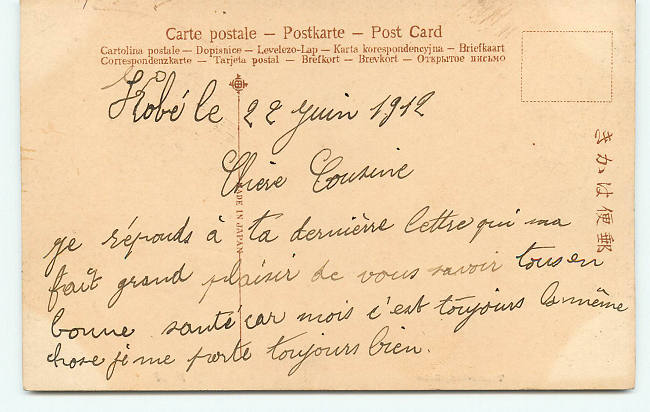 Carte postale — Postkarte — Post Card
Cartolina postale — Dopisnice — Levelezo-Lap — Karta korespondencyjna — Briefkaart
Correspondenzkarte — Tarjeta postal — Brefkort — Brevkort — Открытое письмо
Kobé le 22 Juin 1912
Chère Cousine
je réponds à ta dernière lettre qui ma
fait grand plaisir de vous savoir tous en
bonne santé car mois c'est toujours la même
chose je me porte toujours bien.
MADE IN JAPAN
きかは便郵